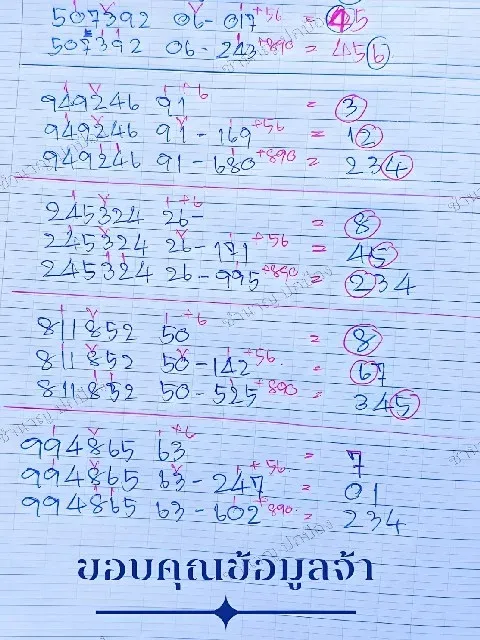 507392 06-017+56 = 45
507392 06-243+890 = 456
949246 91+6 = 3
949246 91-169+56 = 12
949246 91-680+890 = 234
245324 26-+6 = 8
245324 26-171+56 = 45
245324 26-995+890 = 234
811852 50+6 = 8
811852 50-142+56 = 67
811852 50-525+890 = 345
994865 63+6 = 7
994865 63-247+56 = 01
994865 63-602+890 = 234
ขอบคุณข้อมูลจ้า